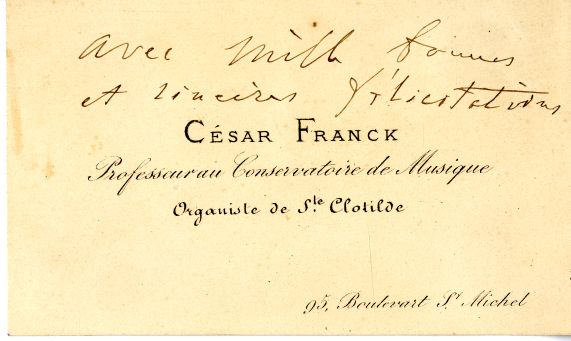 avec mille bonnes
et sincères félicitations
CÉSAR FRANCK
Professeur au Conservatoire de Musique
Organiste de Ste Clotilde
95, Boulevart St Michel